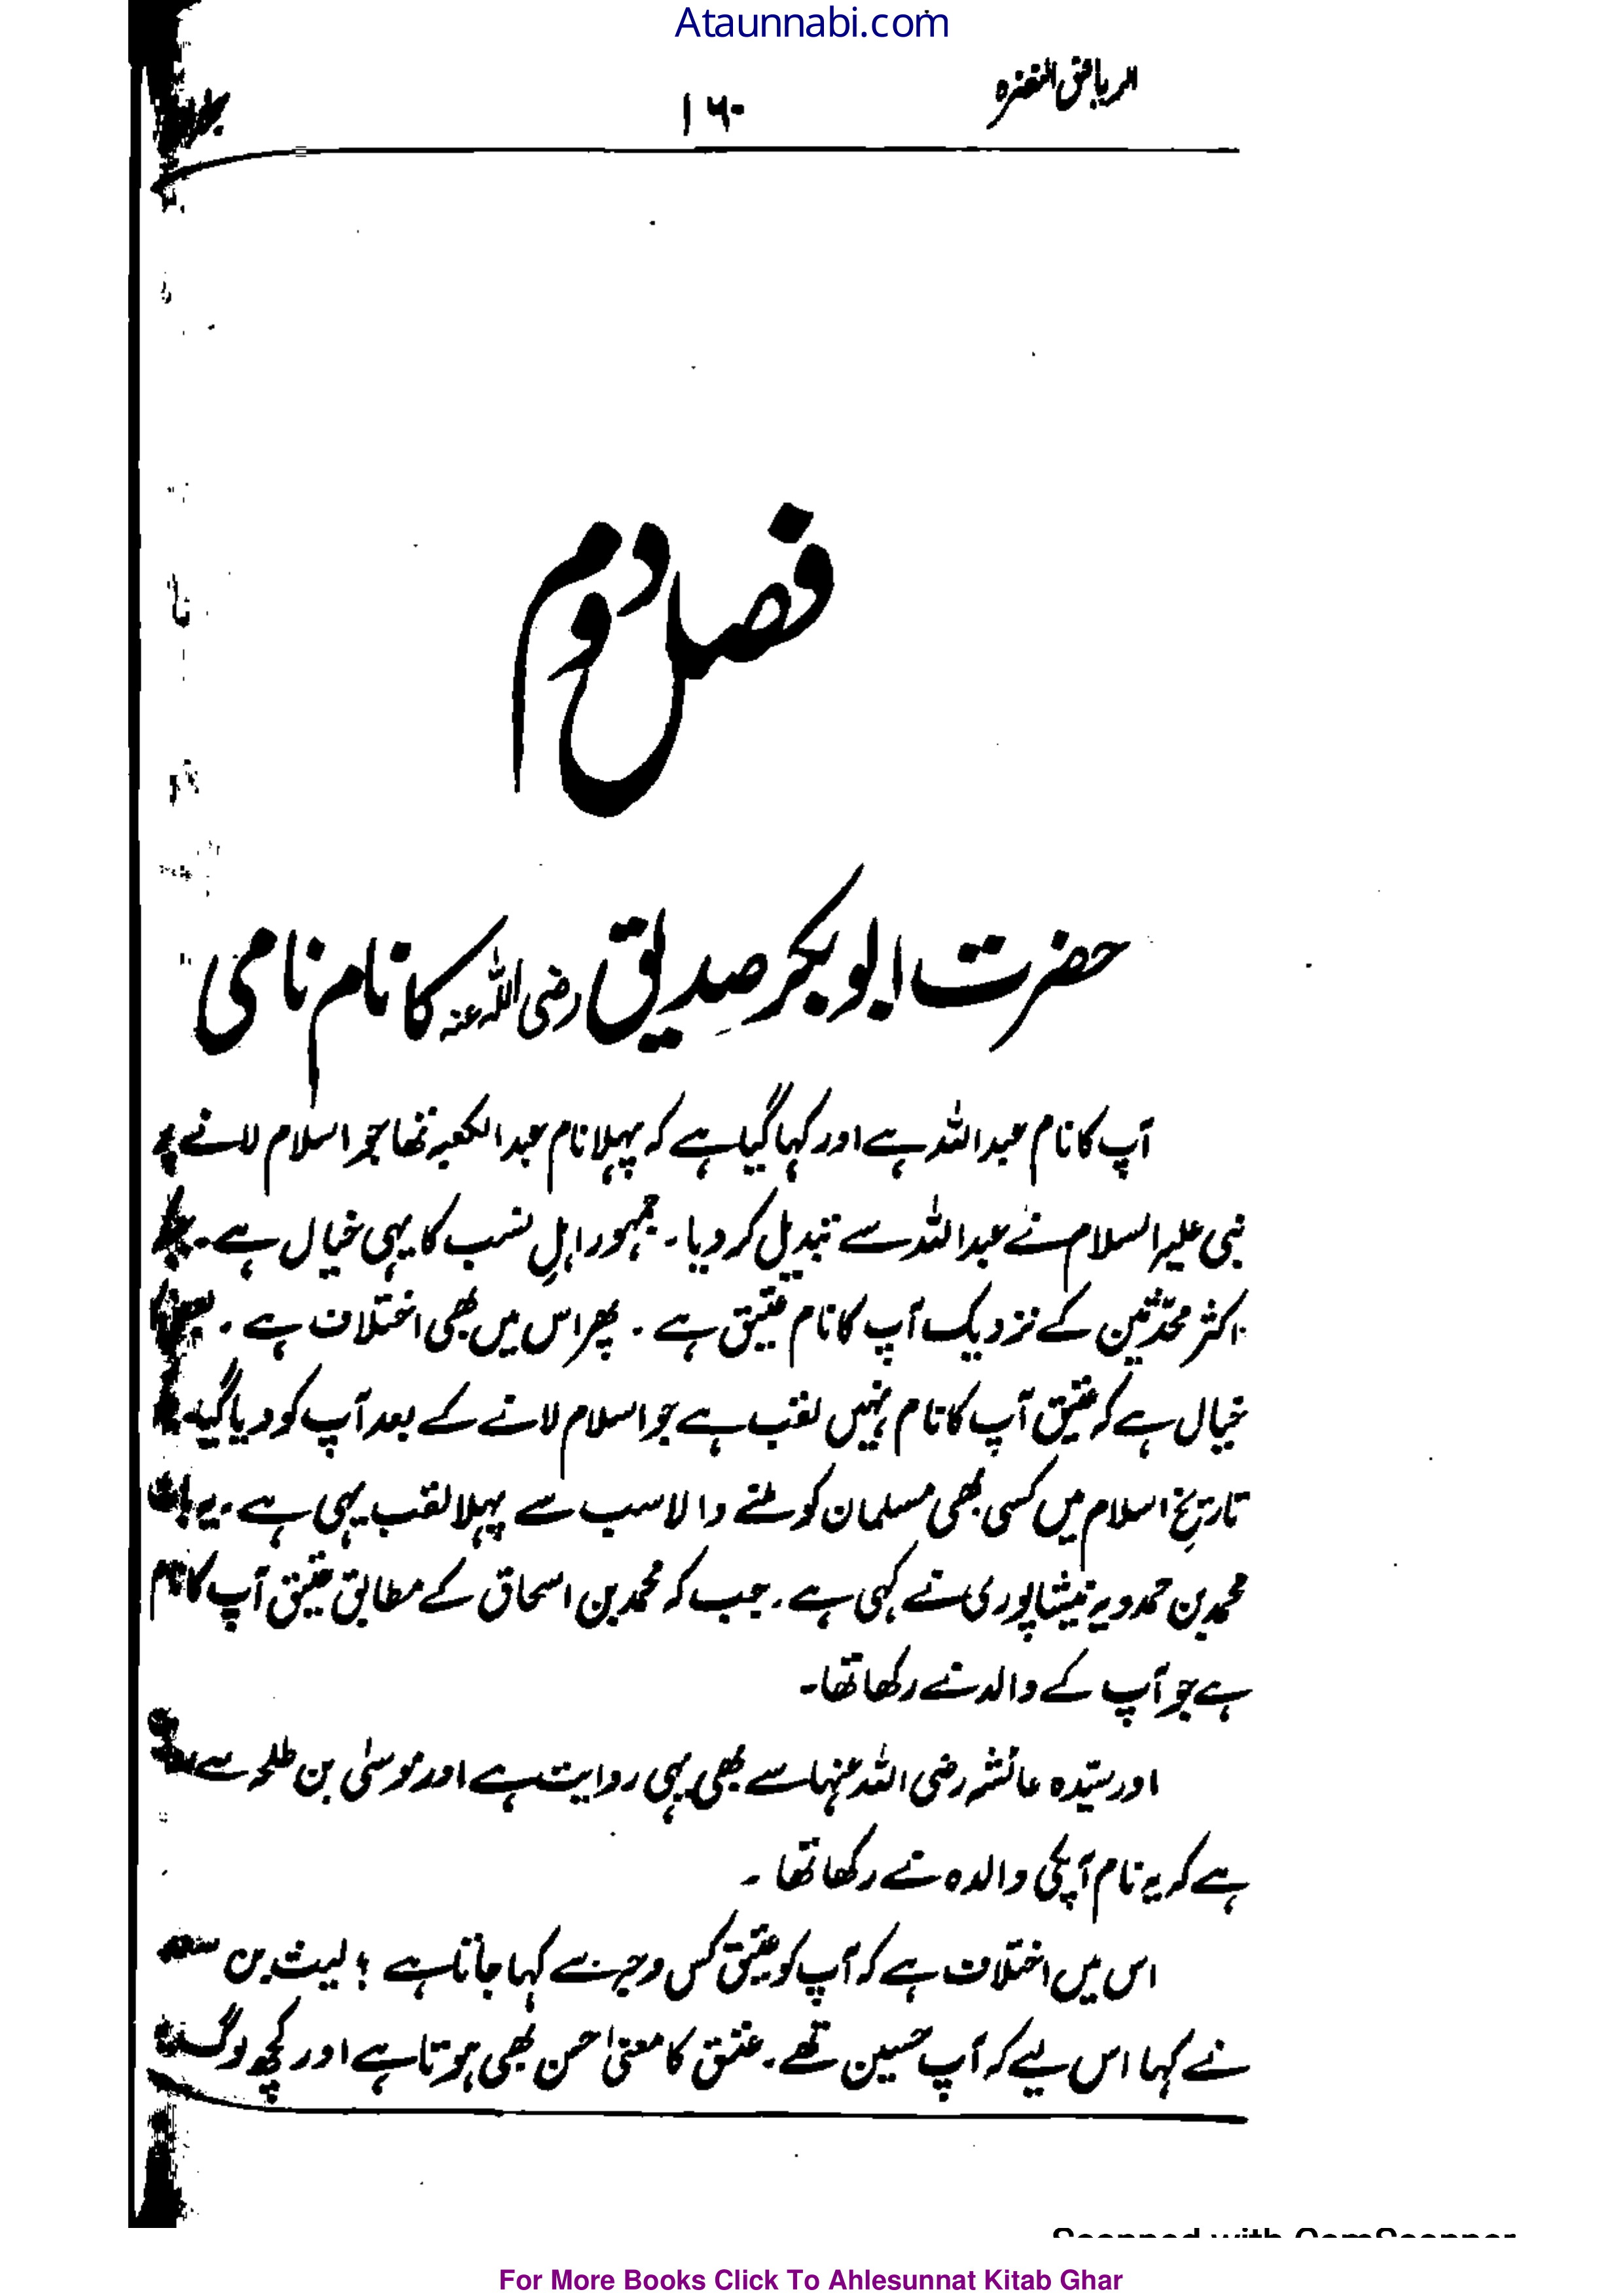 Ataunnabi.com
الریاض النضرہ ۱۶۰
فصل دوم
حضرت ابوبکر صدیق رضی اللہ عنہ کا نام نامی
آپ کا نام عبداللہ ہے اور کہا گیا ہے کہ پہلا نام عبدالکعبہ تھا جو اسلام لانے پر
نبی علیہ السلام نے عبداللہ سے تبدیل کر دیا۔ جمہور اہلِ نسب کا یہی خیال ہے۔
اکثر محدّثین کے نزدیک آپ کا نام عتیق ہے ۔ پھر اس میں بھی اختلاف ہے ۔
خیال ہے کہ عتیق آپ کا نام نہیں لقب ہے جو اسلام لانے کے بعد آپ کو دیا گیا۔
تاریخِ اسلام میں کسی بھی مسلمان کو ملنے والا سب سے پہلا لقب یہی ہے ۔ یہ بات
محمد بن حمدویہ نیشاپوری نے کہی ہے ۔ جب کہ محمد بن اسحاق کے مطابق عتیق آپ کا نام
ہے جو آپ کے والد نے رکھا تھا۔
اور سیّدہ عائشہ رضی اللہ عنہا سے بھی یہی روایت ہے اور موسیٰ بن طلحہ سے
ہے کہ یہ نام آپکی والدہ نے رکھا تھا ۔
اس میں اختلاف ہے کہ آپ کو عتیق کس وجہ سے کہا جاتا ہے ؟ لیث بن سعد
نے کہا اس لیے کہ آپ حسین تھے ۔ عتق کا معنیٰ حسن بھی ہوتا ہے اور کچھ لوگ
Scanned with CamScanner
For More Books Click To Ahlesunnat Kitab Ghar